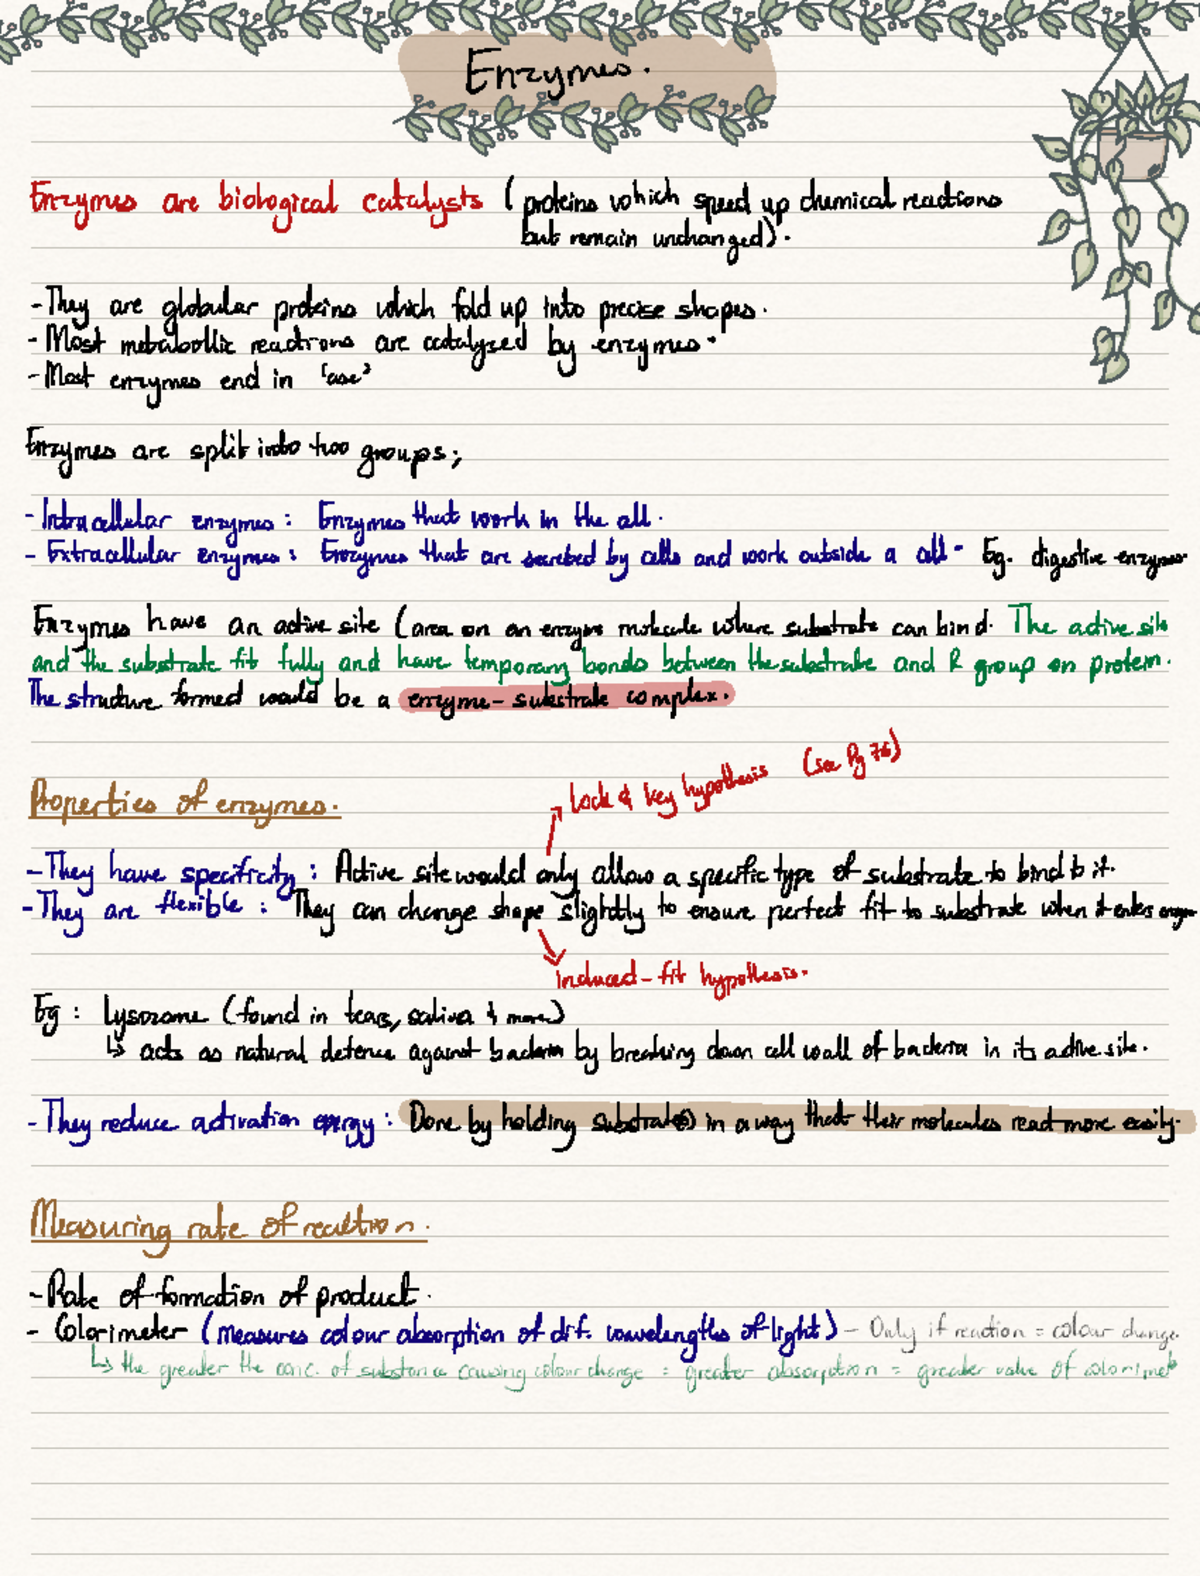 Enzymes.
Enzymes are biological catalysts (proteins which speed up chemical reactions
but remain unchanged).
- They are globular proteins which fold up into precise shapes.
- Most metabollic reactions are catalysed by enzymes.
- Most enzymes end in 'ase'
Enzymes are split into two groups;
- Intracellular enzymes: Enzymes that work in the cell.
- Extracellular enzymes: Enzymes that are secreted by cells and work outside a cell - Eg. digestive enzymes
Enzymes have an active site (area on an enzyme molecule where substrate can bind. The active site
and the substrate fit fully and have temporary bonds between the substrate and R group on protein.
The structure formed would be a enzyme-substrate complex.
Properties of enzymes.
Lock & key hypothesis (see Pg 76)
- They have specificity: Active site would only allow a specific type of substrate to bind to it.
- They are flexible: They can change shape slightly to ensure perfect fit to substrate when it enters
Induced-fit hypothesis.
Eg: Lysozome (found in tears, saliva & more)
↳ acts as natural defence against bacteria by breaking down cell wall of bacteria in its active site.
- They reduce activation energy: Done by holding substrate(s) in a way that their molecules react more easily.
Measuring rate of reaction.
- Rate of formation of product.
- Colorimeter (measures colour absorption of dif. wavelengths of light) - Only if reaction = colour change.
↳ the greater the conc. of substance causing colour change = greater absorption = greater value of